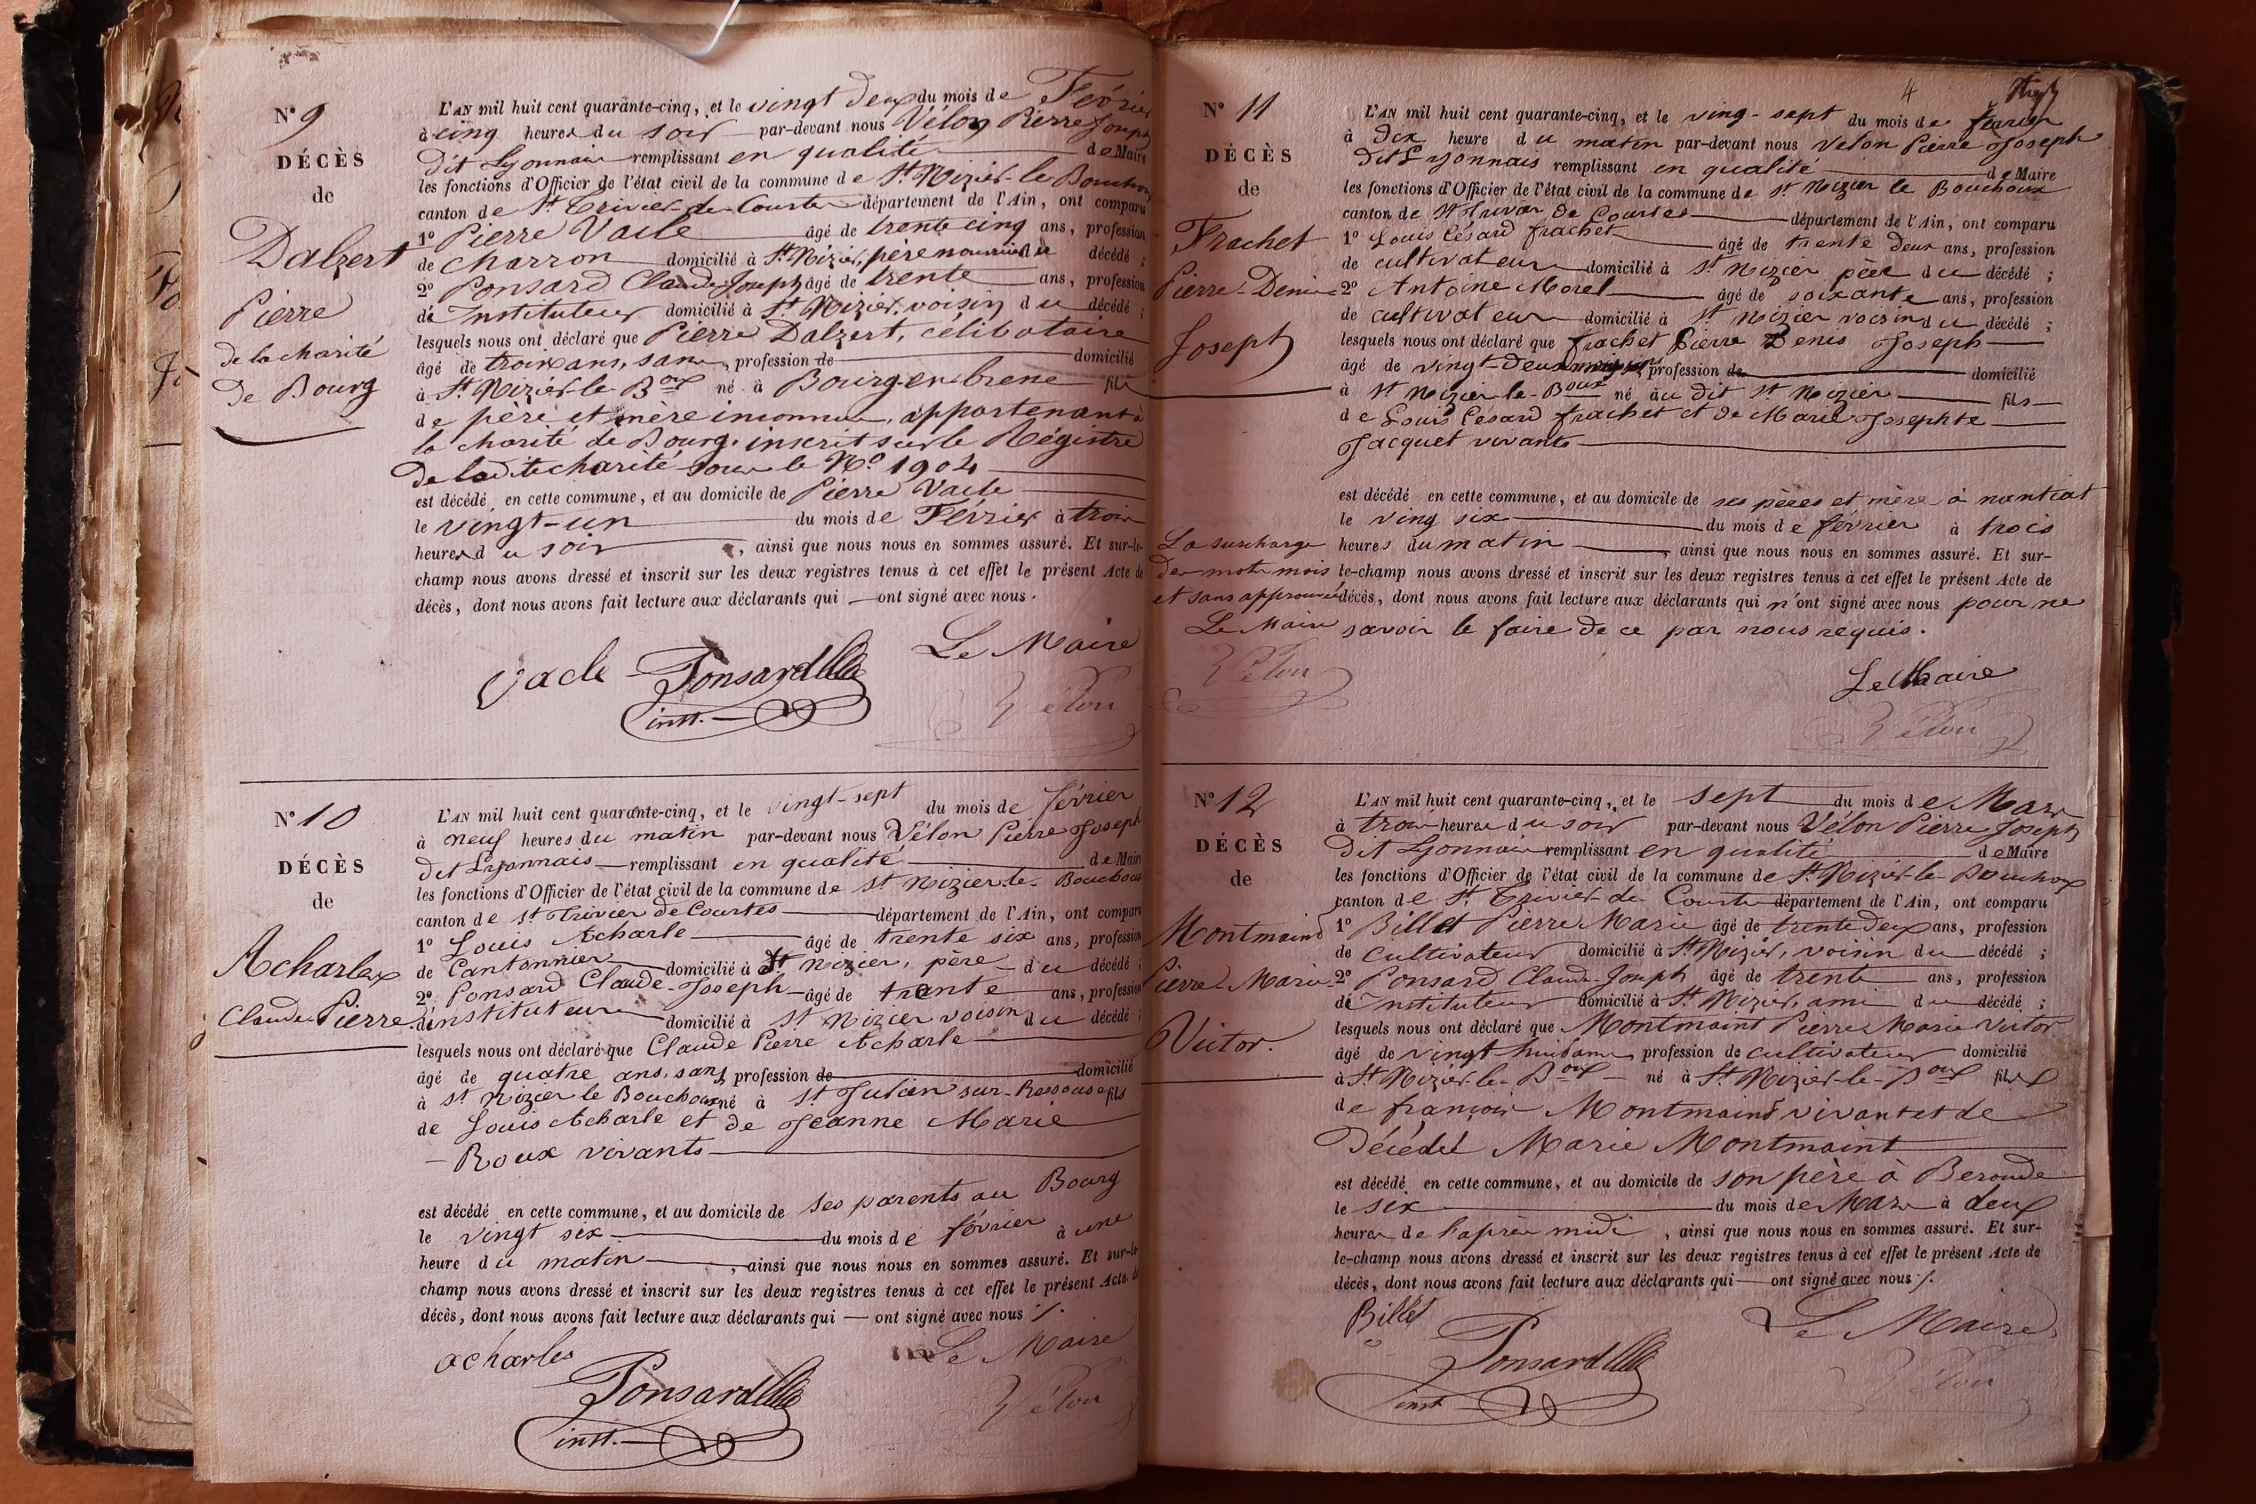 N° 9
DÉCÈS
de
Dalzert
Pierre
de la charité
de Bourg
L'AN mil huit cent quarante-cinq, et le vingt deux du mois de Février
à cinq heures du soir par-devant nous Vélon Pierre Joseph
dit Lyonnais remplissant en qualité de Maire
les fonctions d'Officier de l'état civil de la commune de St Nizier-le Bouchoux
canton de St Trivier de Courtes département de l'Ain, ont comparu
1° Pierre Vacle âgé de trente cinq ans, profession
de charron domicilié à St Nizier, père nourricier décédé ;
2° Ponsard Claude Joseph âgé de trente ans, profession
de Instituteur domicilié à St Nizier, voisin du décédé ;
lesquels nous ont déclaré que Pierre Dalzert, célibataire
âgé de trois ans, sans profession de domicilié
à St Nizier-le-Boux né à Bourg en brene fils
de père et mère inconnus, appartenant à
la charité de Bourg, inscrit sur le Régistre
de la dite charité sous le N° 1904
est décédé en cette commune, et au domicile de Pierre Vacle
le vingt-un du mois de Février à trois
heures du soir, ainsi que nous nous en sommes assuré. Et sur-le-
champ nous avons dressé et inscrit sur les deux registres tenus à cet effet le présent Acte de
décès, dont nous avons fait lecture aux déclarants qui ont signé avec nous.
Vacle Ponsard Le Maire
instr. Vélon
N° 10
DÉCÈS
de
Acharles
Claude Pierre
L'AN mil huit cent quarante-cinq, et le vingt-sept du mois de février
à neuf heures du matin par-devant nous Vélon Pierre Joseph
dit Lyonnais remplissant en qualité de Maire
les fonctions d'Officier de l'état civil de la commune de St Nizier-le-Bouchoux
canton de St Trivier de Courtes département de l'Ain, ont comparu
1° Louis Acharle âgé de trente six ans, profession
de Cantonnier domicilié à St Nizier, père du décédé ;
2° Ponsard Claude-Joseph âgé de trente ans, profession
d'instituteur domicilié à St Nizier voisin du décédé ;
lesquels nous ont déclaré que Claude Pierre Acharle
âgé de quatre ans, sans profession de domicilié
à St Nizier le Bouchoux né à St Julien sur-Ressouse fils
de Louis Acharle et de Jeanne Marie
Roux vivants
est décédé en cette commune, et au domicile de ses parents au Bourg
le vingt six du mois de février à une
heure du matin, ainsi que nous nous en sommes assuré. Et sur-le-
champ nous avons dressé et inscrit sur les deux registres tenus à cet effet le présent Acte de
décès, dont nous avons fait lecture aux déclarants qui — ont signé avec nous ./.
acharles Le Maire
Ponsard Vélon
instr.
4
N° 11
DÉCÈS
de
Frachet
Pierre-Denis
Joseph
L'AN mil huit cent quarante-cinq, et le ving-sept du mois de février
à dix heure du matin par-devant nous Vélon Pierre Joseph
dit Lyonnais remplissant en qualité de Maire
les fonctions d'Officier de l'état civil de la commune de St Nizier le Bouchoux
canton de St Trivier de Courtes département de l'Ain, ont comparu
1° Louis César frachet âgé de trente deux ans, profession
de cultivateur domicilié à St Nizier père du décédé ;
2° Antoine Morel âgé de soixante ans, profession
de cultivateur domicilié à St Nizier voisin du décédé ;
lesquels nous ont déclaré que frachet Pierre Denis Joseph
âgé de vingt-deux mois sans profession de domicilié
à St Nizier-le-Boux né au dit St Nizier fils
de Louis César frachet et de Marie Josephte
Jacquet vivants
est décédé en cette commune, et au domicile de ses pères et mère à nantcat
le ving six du mois de février à trois
heures du matin, ainsi que nous nous en sommes assuré. Et sur-
le-champ nous avons dressé et inscrit sur les deux registres tenus à cet effet le présent Acte de
décès, dont nous avons fait lecture aux déclarants qui n'ont signé avec nous pour ne
savoir le faire de ce par nous requis.
La surcharge
des mots mois
et sans approuvée
Le Maire
Vélon
Le Maire
Vélon
N° 12
DÉCÈS
de
Montmaint
Pierre Marie
Victor.
L'AN mil huit cent quarante-cinq, et le sept du mois de Mars
à trois heures du soir par-devant nous Vélon Pierre Joseph
dit Lyonnais remplissant en qualité de Maire
les fonctions d'Officier de l'état civil de la commune de St Nizier-le-Bouchoux
canton de St Trivier-de Courtes département de l'Ain, ont comparu
1° Billet Pierre Marie âgé de trente deux ans, profession
de cultivateur domicilié à St Nizier, voisin du décédé ;
2° Ponsard Claude Joseph âgé de trente ans, profession
de Instituteur domicilié à St Nizier, ami du décédé ;
lesquels nous ont déclaré que Montmaint Pierre Marie Victor
âgé de vingt huit ans profession de cultivateur domicilié
à St Nizier-le-Boux né à St Nizier-le-Boux fils
de françois Montmaint vivant et de
décédée Marie Montmaint
est décédé en cette commune, et au domicile de son père à Beroude
le six du mois de Mars à deux
heures de l'après midi, ainsi que nous nous en sommes assuré. Et sur-
le-champ nous avons dressé et inscrit sur les deux registres tenus à cet effet le présent Acte de
décès, dont nous avons fait lecture aux déclarants qui — ont signé avec nous ./.
Billet Le Maire
Ponsard Vélon
instr.